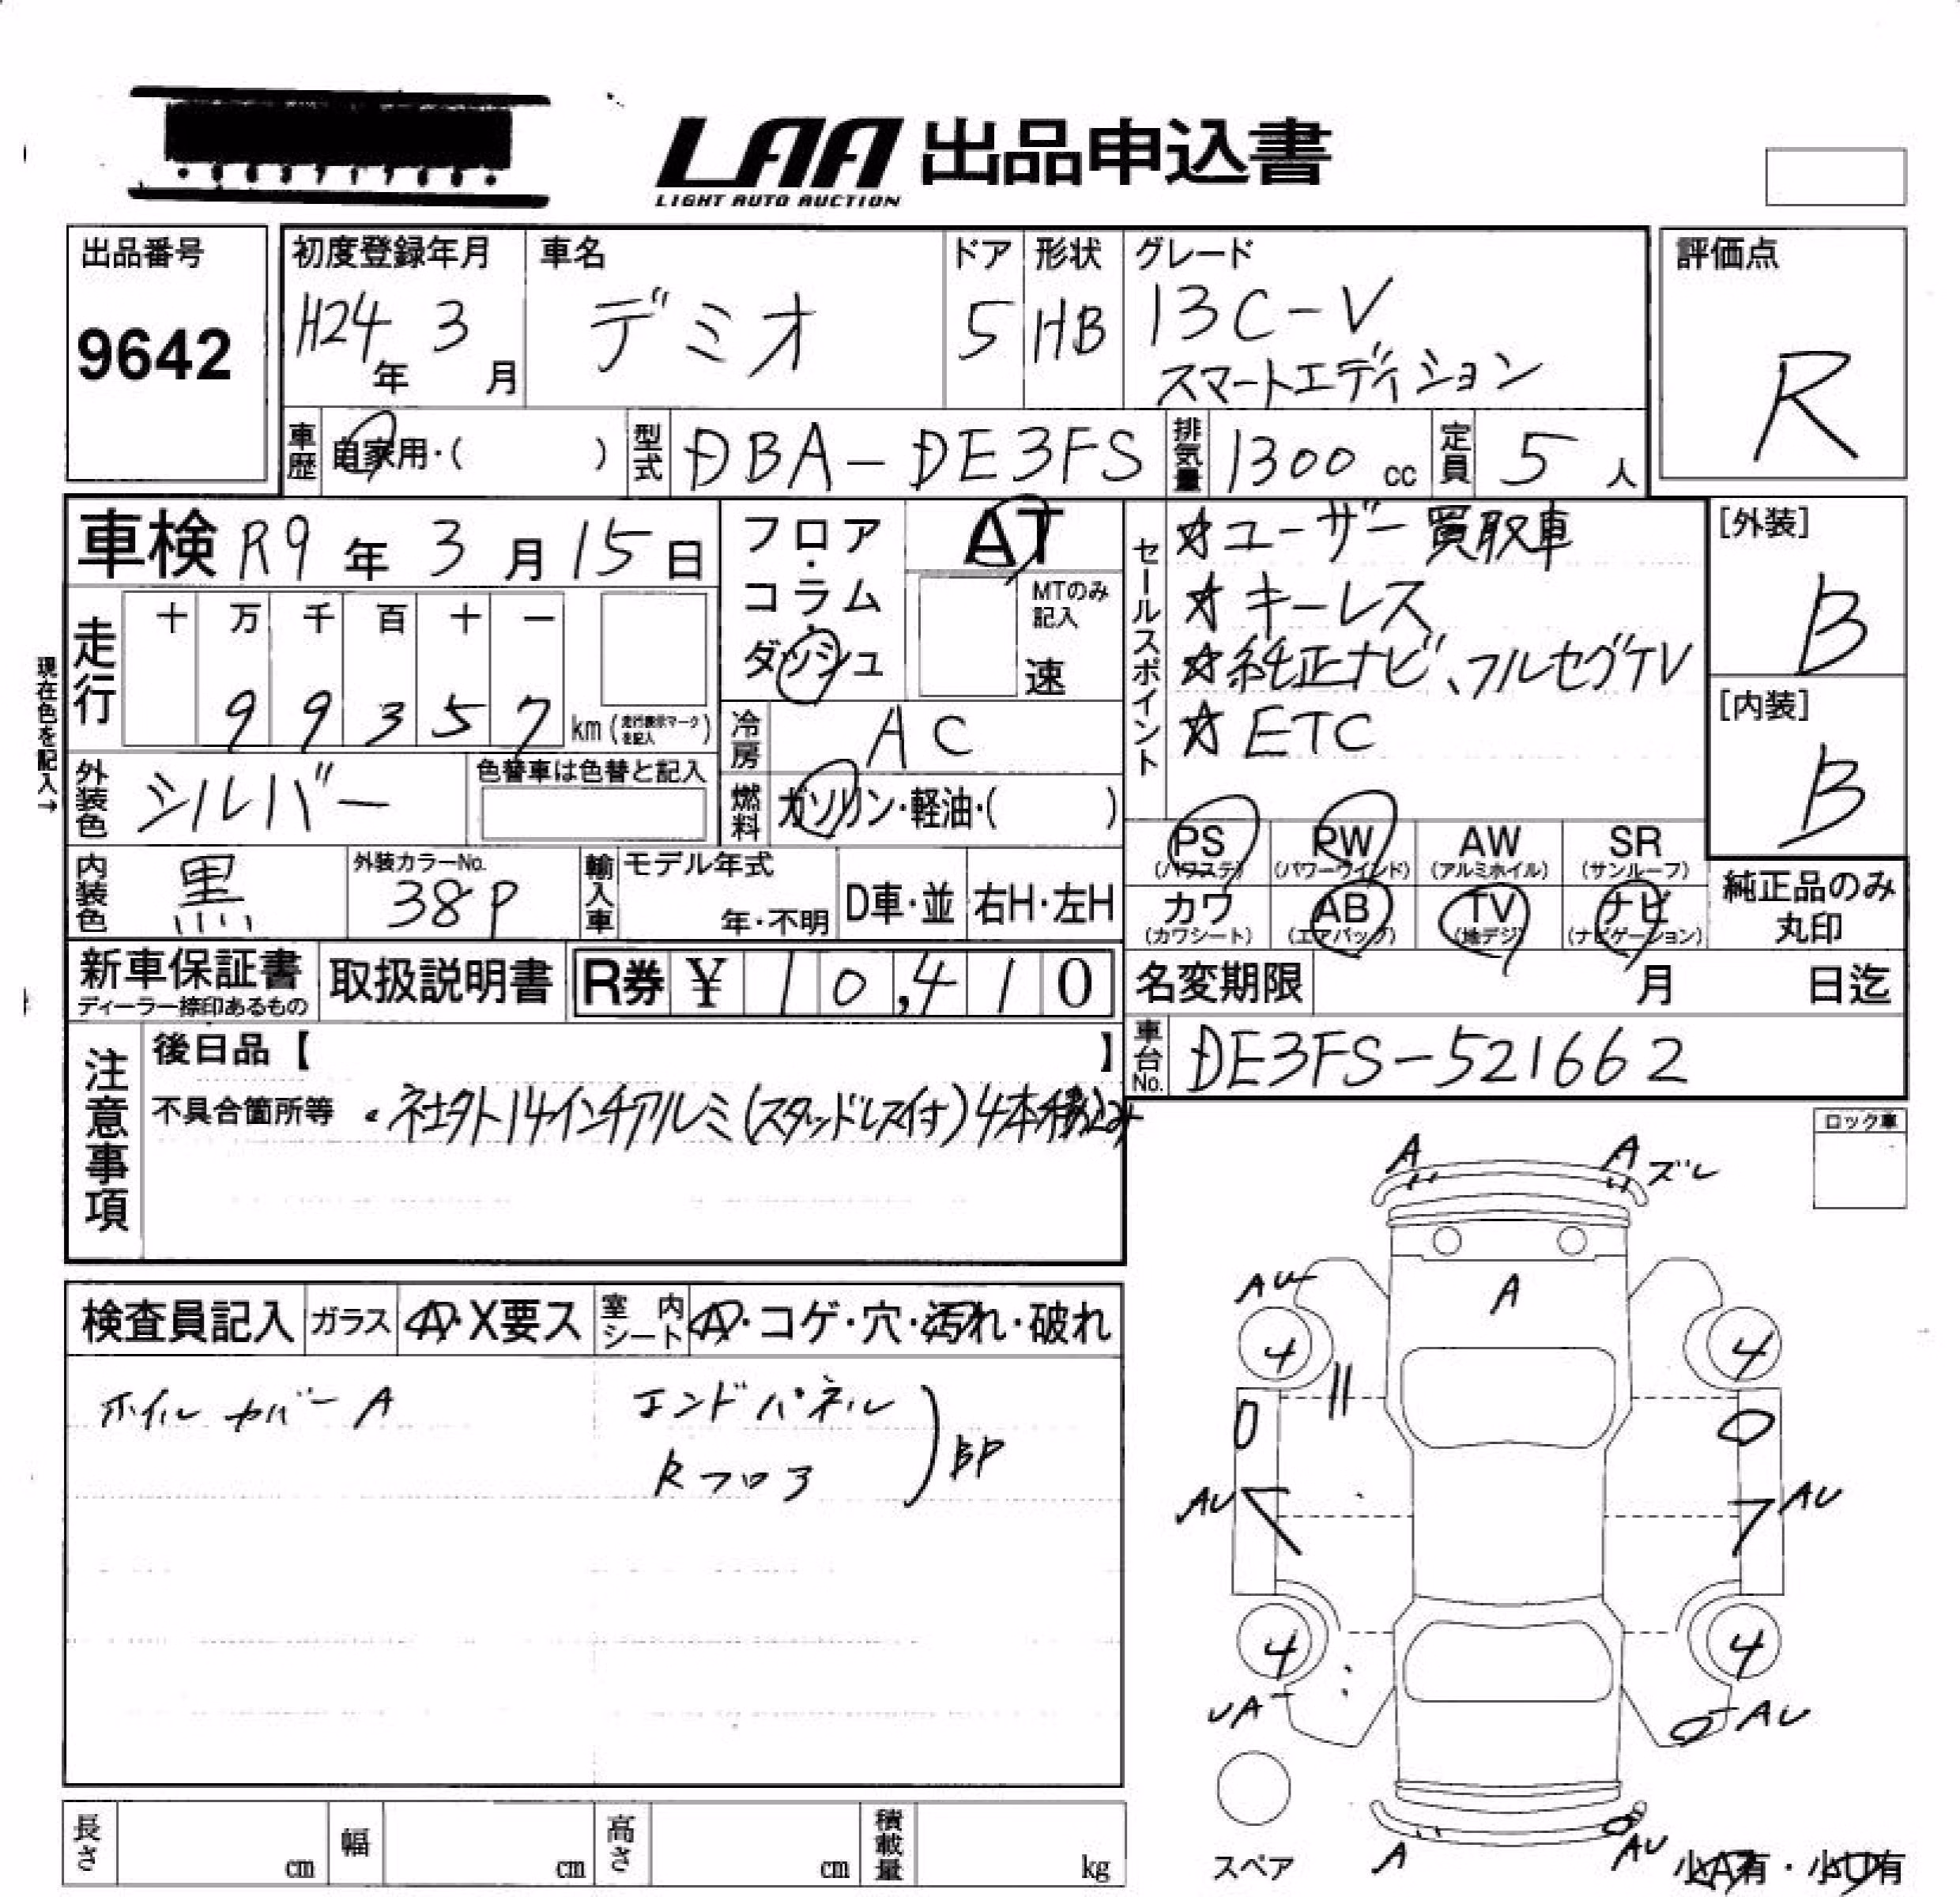 LAA 出品申込書
LIGHT AUTO AUCTION
出品番号
9642
初度登録年月
H24年 3月
車名
デミオ
ドア
5
形状
HB
グレード
13C-V
スマートエディション
評価点
R
車歴
自家用・( )
型式
DBA-DE3FS
排気量
1300 cc
定員
5 人
車検 R9年 3月 15日
走行
十 万 千 百 十 一
9 9 3 5 7 km (走行表示マークを記入)
現在色を記入→
外装色
シルバー
色替車は色替と記入
内装色
黒
外装カラーNo.
38P
輸入車
モデル年式
年・不明
D車・並
右H・左H
フロア・コラム・ダッシュ
AT
MTのみ記入
速
冷房
AC
燃料
ガソリン・軽油・( )
セールスポイント
☆ユーザー買取車
☆キーレス
☆純正ナビ、フルセグTV
☆ETC
[外装]
B
[内装]
B
PS (パワステ)
PW (パワーウインド)
AW (アルミホイル)
SR (サンルーフ)
カワ (カワシート)
AB (エアバッグ)
TV (地デジ)
ナビ (ナビゲーション)
純正品のみ丸印
新車保証書
ディーラー捺印あるもの
取扱説明書
R券 ¥ 10,410
名変期限 月 日迄
車台No.
DE3FS-521662
注意事項
後日品【 】
不具合箇所等 ・社外14インチアルミ(スタッドレス付)4本積込み
ロック車
検査員記入
ガラス
A・X要ス
室内シート
A・コゲ・穴・汚れ・破れ
ホイルカバーA
エンドパネル
Rフロア
BP
A
A ズレ
AU
A
4
4
AU
AU
4
4
UA
AU
スペア
A
AU
小A有・小U有
長さ cm
幅 cm
高さ cm
積載量 kg